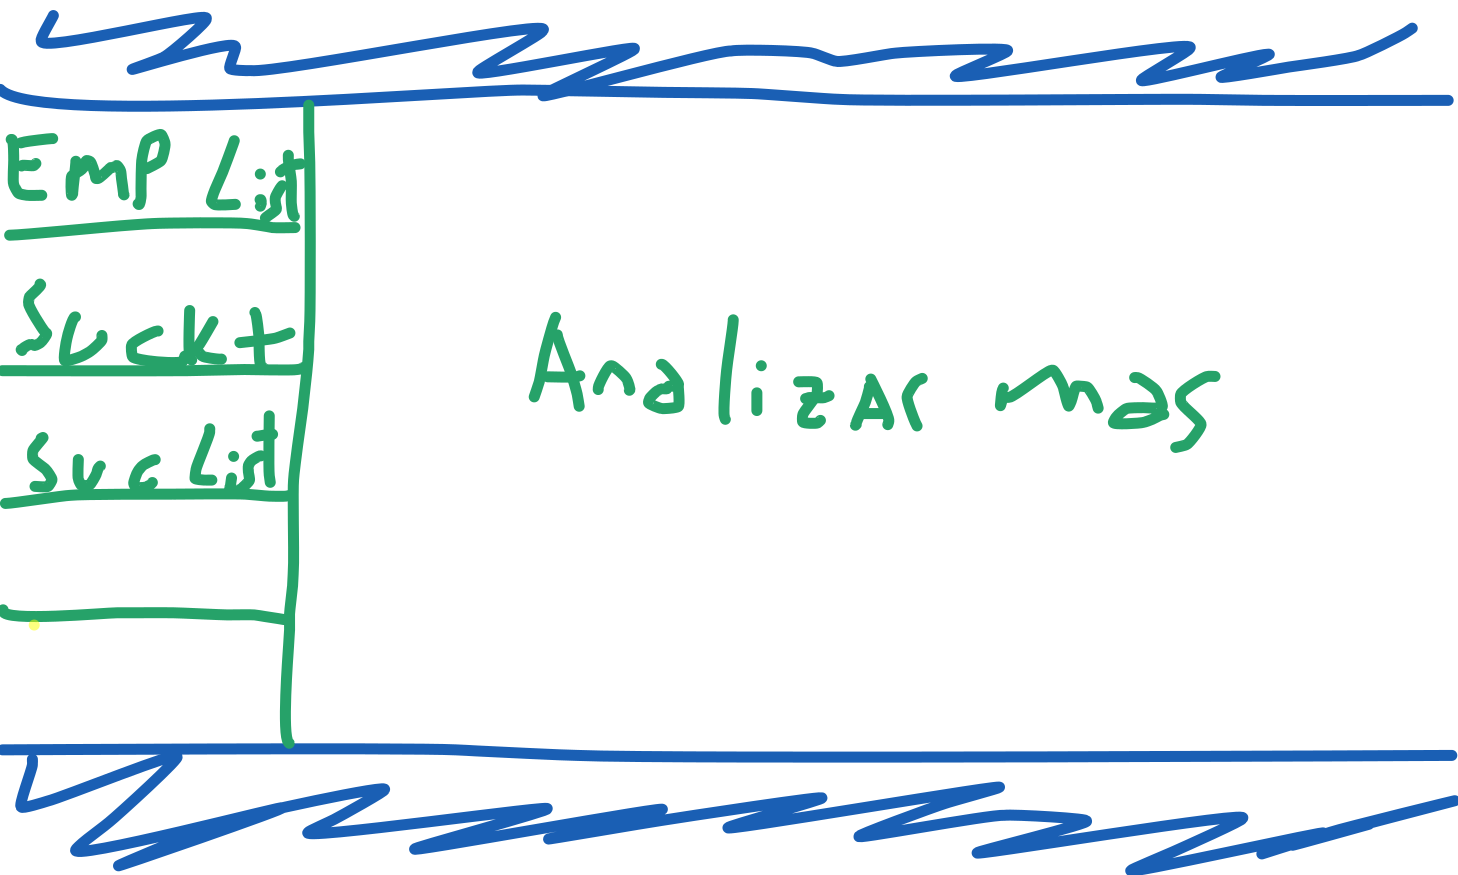 Emp List
Suckt
Suc List
Analizar mas